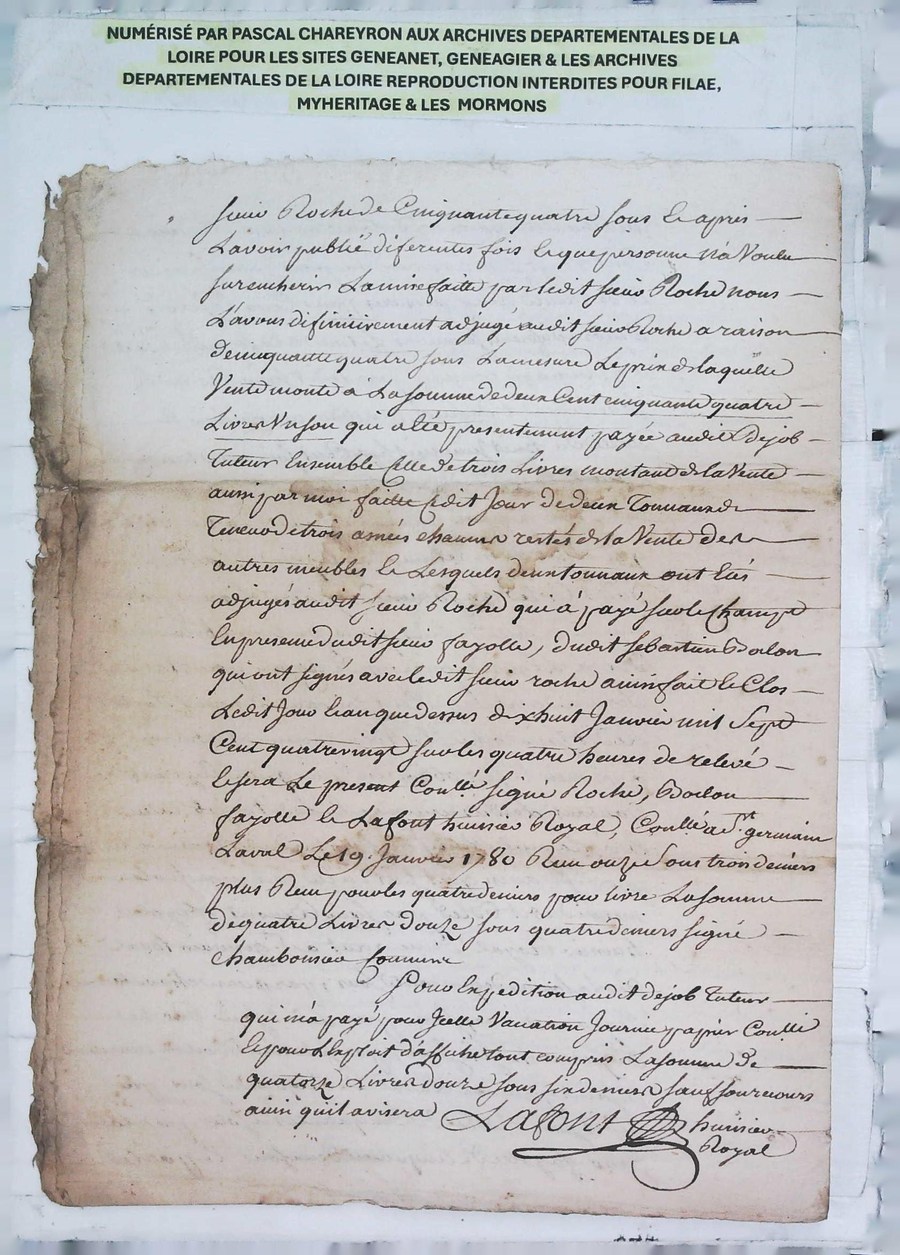 NUMÉRISÉ PAR PASCAL CHAREYRON AUX ARCHIVES DEPARTEMENTALES DE LA
LOIRE POUR LES SITES GENEANET, GENEAGIER & LES ARCHIVES
DEPARTEMENTALES DE LA LOIRE REPRODUCTION INTERDITES POUR FILAE,
MYHERITAGE & LES MORMONS
sieur Roche de Cinquante quatre sous et après
L'avoir publié diferentes fois et que personne n'a Voulu
surencherir La mise faitte par ledit sieur Roche nous
L'avons difinitivement adjugé audit sieur Roche a raison
de cinquante quatre sous La mesure Le prix de laquelle
Vente monte à La somme de deux Cent cinquante quatre
Livres Un sou qui a été presentement payée audit Dejob
Tuteur Ensemble Celle de trois Livres montant de la Vente
aussi par moi faitte Cedit Jour de deux Tonnaux de
Teneur de trois anées chacun restés de la Vente des
autres meubles et Lesquels deux tonnaux ont étés
adjugés audit sieur Roche qui à payé sur le Champt
En presence dudit sieur fayolle, dudit sebastien Dolon
qui ont signés avec ledit sieur roche ainsi fait et Clos
Ledit Jour et an que dessus dixhuit Janvier mil Sept
Cent quatrevingt sur les quatre heures de relevé
et sera Le present Conllé. signé Roche, Dolon
fayolle et Lafont huissier Royal, Conllé a St. germain
Laval Le 19. Janvier 1780 Reçu onze Sous trois deniers
plus Reçu pour les quatre deniers pour livre La somme
de quatre Livres douze sous quatre deniers signé
Chambonière Commis
Pour Expedition audit dejob Tuteur
qui m'a payé pour Jcelle Vacation Journée papier Conllé
et pour L'exploit d'affiche tout compris La somme de
quatorze Livres douze sous six deniers sauf son recours
ainsi qu'il avisera Lafont huissier
Royal